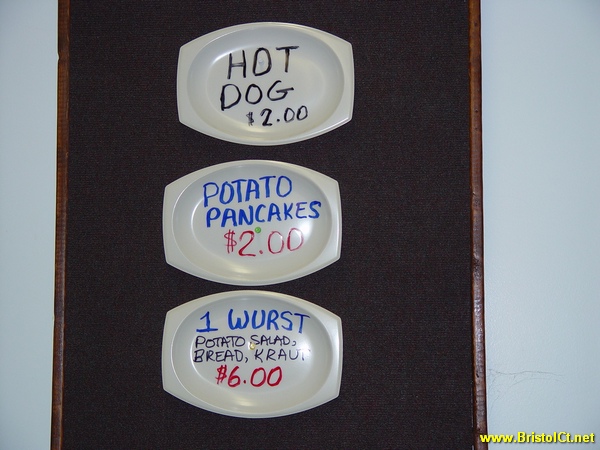 HOT
DOG
$2.00
POTATO
PANCAKES
$2.00
1 WURST
POTATO SALAD,
BREAD, KRAUT
$6.00
www.BristolCt.net